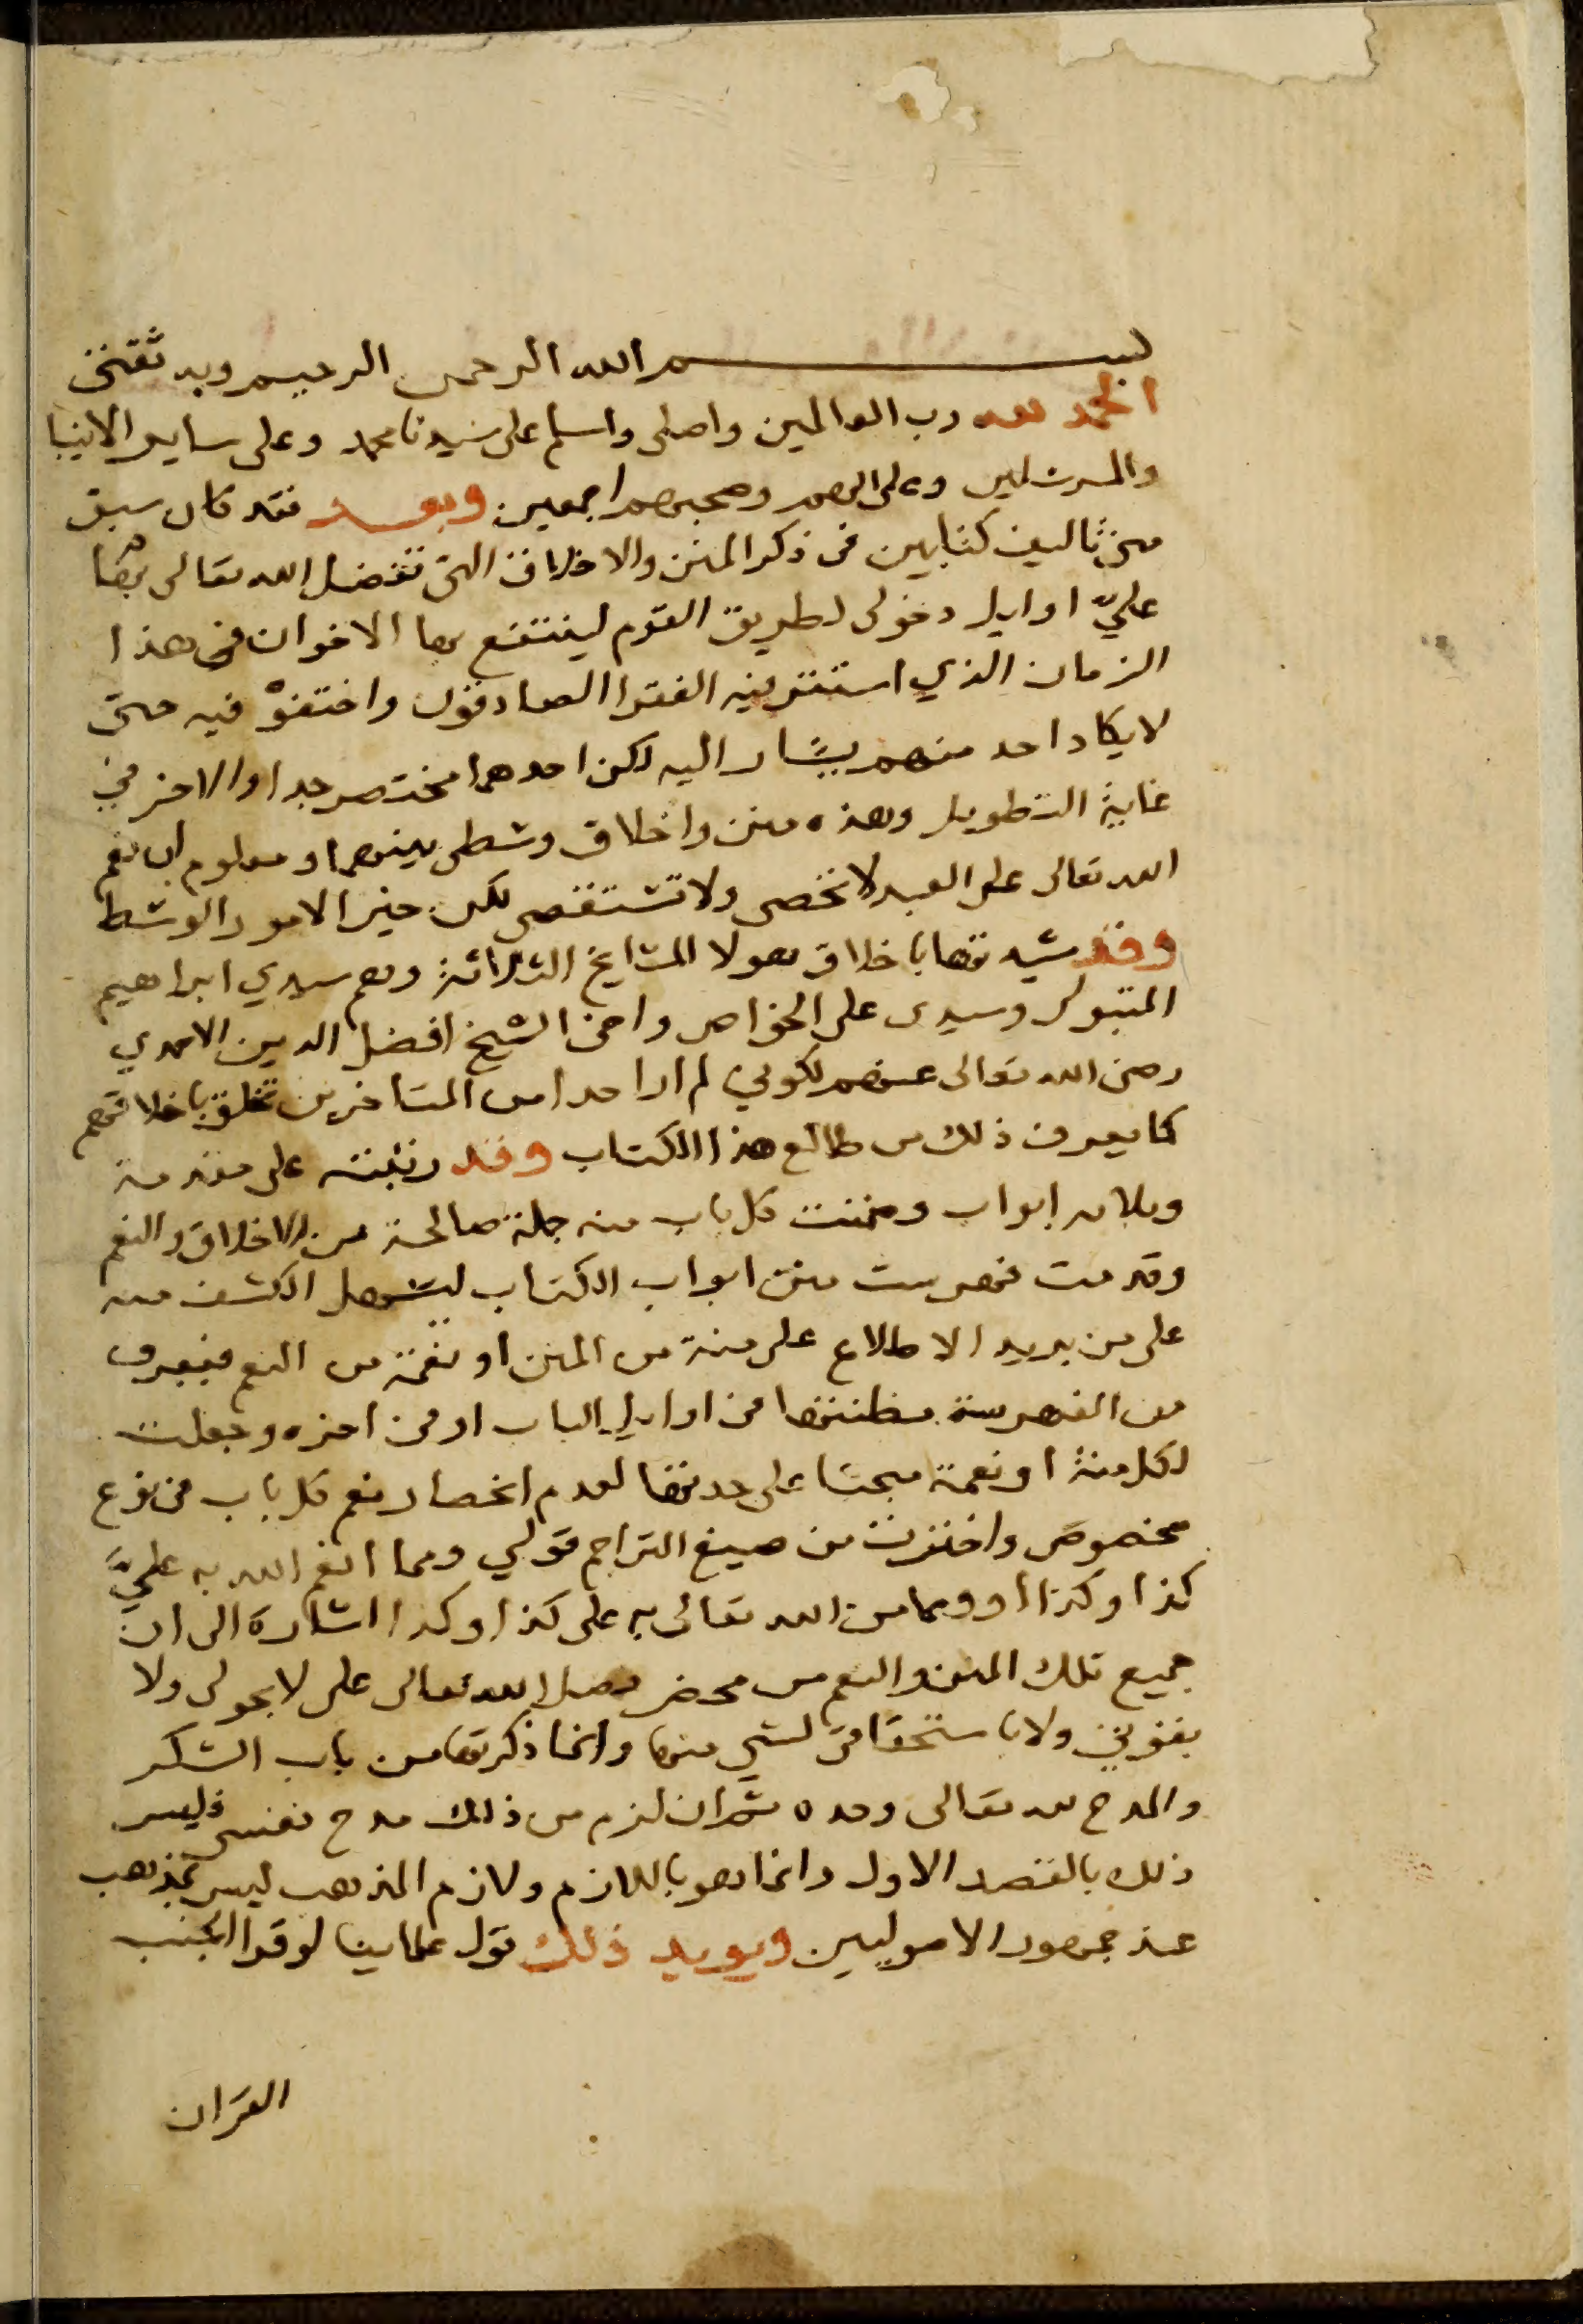 بسم الله الرحمن الرحيم وبه ثقتى
الحمد لله رب العالمين واصلى واسلم على سيدنا محمد وعلى ساير الانبيا
والمرسلين وعلى الهم وصحبهم اجمعين وبعد فقد كان سبق
منى تاليف كتابين فى ذكر المنن والاخلاق التى تفضل الله تعالى بها
عليّ اوايل دخولى لطريق القوم لينتفع بها الاخوان فى هذا
الزمان الذي استتر فيه الفقرا الصادقون واختفوْ فيه حتى
لا يكاد احد منهم يشار اليه لكن احدهما مختصر جدا والاخر في
غاية التطويل وهذه منن واخلاق وسطى بينهما ومعلوم ان نعم
الله تعالى على العبد لا تحصى ولا تستقصى لكن خير الامور الوسط
وقد شيدتها باخلاق هولا المشايخ الثلاثة وهم سيدي ابراهيم
المتبولى وسيدى على الخواص واخى الشيخ افضل الدين الاحمدي
رضى الله تعالى عنهم لكوني لم ار احدا من المتاخرين تخلق باخلاقهم
كما يعرف ذلك من طالع هذا الكتاب وقد رتبته على مقدمة
وثلاثه ابواب وضمنت كل باب منه جملة صالحة من الاخلاق والنعم
وقدمت فهرست منن ابواب الكتاب ليسهل الكشف منه
على من يريد الاطلاع على منة من المنن او نعمة من النعم فيعرف
من الفهرسة مظنتها من اوايل الباب او من اخره وجعلت
لكل منة او نعمة مبحثا على حدتها لعدم انحصار نعم كل باب فى نوع
مخصوص واخترت من صيغ التراجم قولي ومما انعم الله به عليَّ
كذا وكذا او ومما من الله تعالى به على كذا وكذا اشارة الى ان
جميع تلك المنن والنعم من محض فضل الله تعالى على لا بحولى ولا
بقوتي ولا باستحقاقى لشي منها وانما ذكرتها من باب الشكر
والمدح لله تعالى وحده ثم ان لزم من ذلك مدح نفسى فليس
ذلك بالقصد الاول وانما هو باللازم ولازم المذهب ليس بمذهب
عند جمهور الاصوليين ويويد ذلك قول علماينا لو قرا الجنب
القران